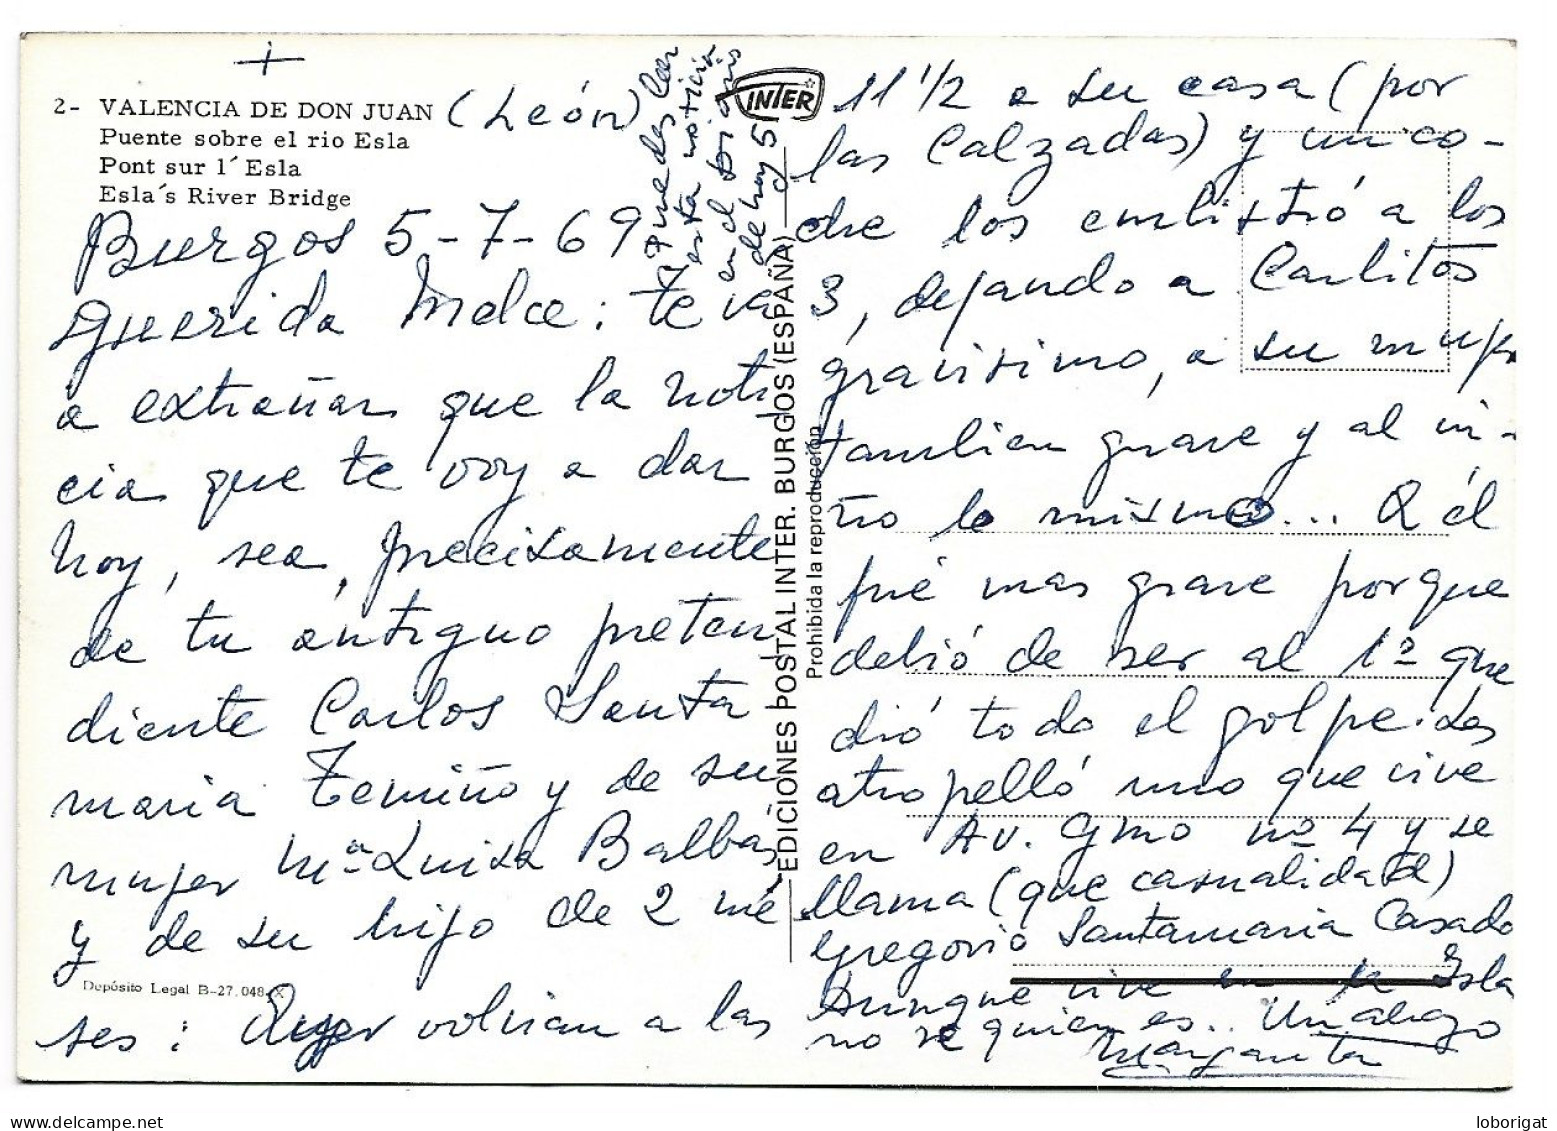 +
2- VALENCIA DE DON JUAN (León)
Puente sobre el rio Esla
Pont sur l´Esla
Esla´s River Bridge
Burgos 5-7-69
Querida Melce: te va
a extrañar que la noti
cia que te voy a dar
hoy, sea, precisamente
de tu antiguo preten
diente Carlos Santa
maria Temiño y de su
mujer Mª Luisa Balbás
y de su hijo de 2 me
ses: Ayer volvian a las
Depósito Legal B-27.048-X
Puedes leer
esta noticia
en el
de hoy 5
INTER
EDICIONES POSTAL INTER. BURGOS (ESPAÑA)
Prohibida la reproducción
11 1/2 a su casa (por
las Calzadas) y un co-
che los embistió a los
3, dejando a Carlitos
gravisimo, a su mujer
tambien grave y al ni-
ño lo mismo... Q él
fué mas grave porque
debió de ser al 1º que
dió todo el golpe. Los
atropelló uno que vive
en Av. Gmo nº 4 y se
llama (que casualidad)
Gregorio Santamaria Casado
Aunque vive en la Isla
no se quien es.. Un abrazo
Margarita
loborigat